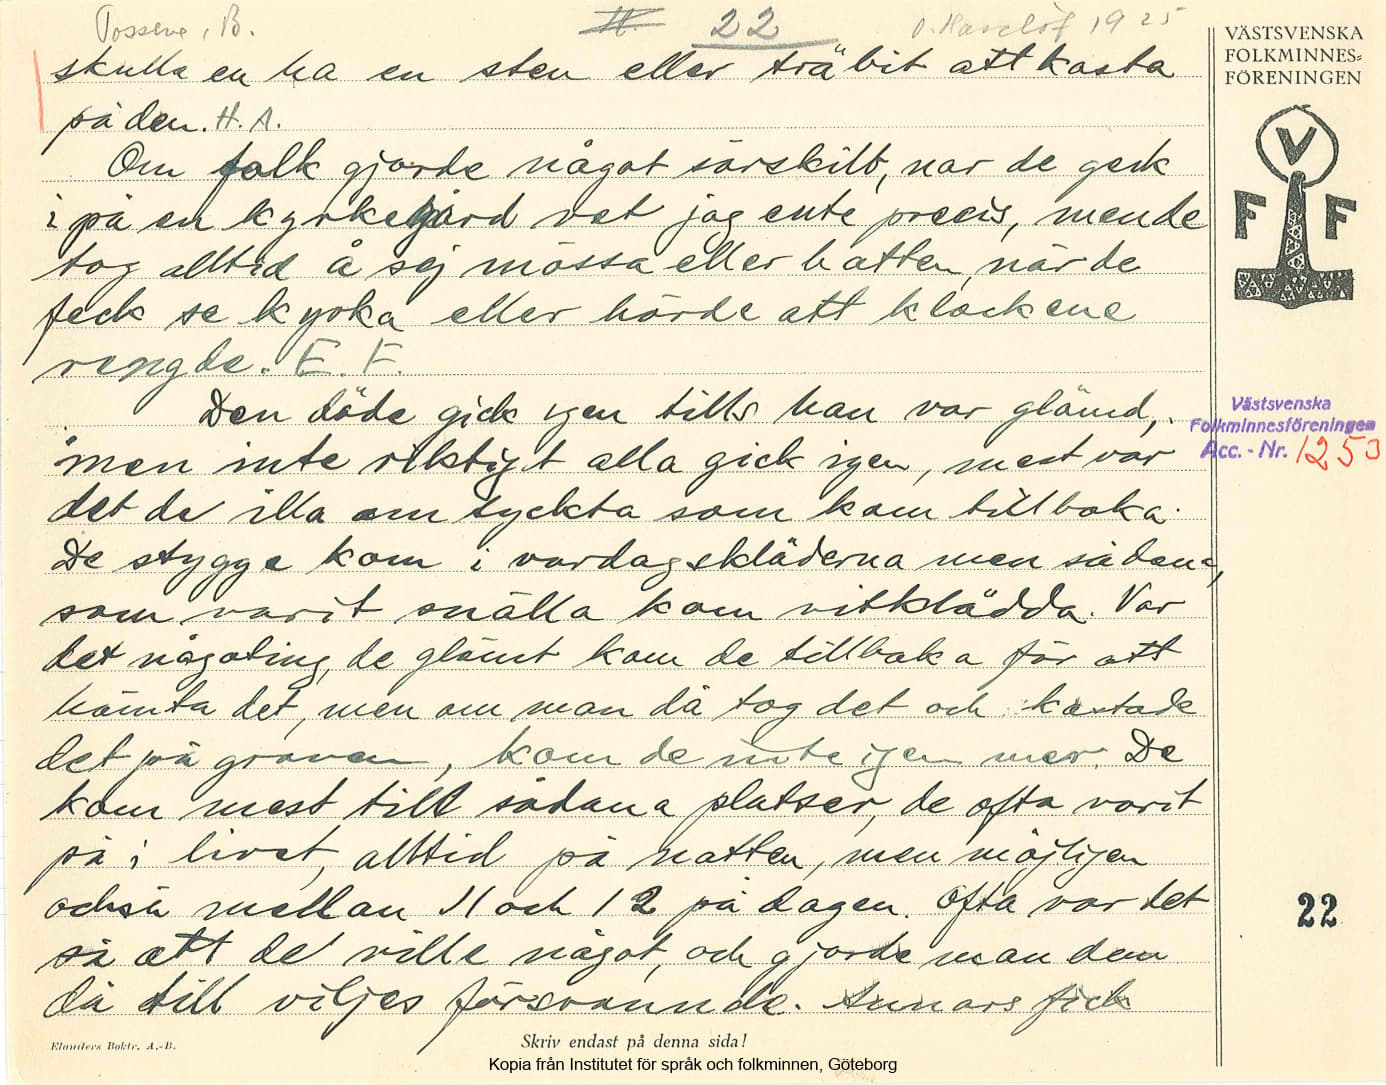 Tossene, B. 22 1925
skulle en ha en sten eller träbit att kasta
på den. H. A.
Om folk gjorde något särskilt, nar de geck
i på en kyrkegård vet jag ente precis, men de
tog alltid å sej mössa eller hatten, när de
feck se kyrka eller hörde att klockene
rengde. E. F.
Den döde gick igen tills han var glömd,
men inte riktigt alla gick igen, mest var
det de illa om tyckta som kom tillbaka.
De stygge kom i vardagskläderna men sådana,
som varit snälla kom vitklädda. Var
det någoting, de glömt kom de tillbaka för att
hämta det, men om man då tog det och kastade
det på graven, kom de inte igen mer. De
kom mest till sådana platser, de ofta varit
på i livet, alltid på natten, men möjligen
också mellan 11 och 12 på dagen. Ofta var det
så att de ville något, och gjorde man dem
då till viljes försvannde. Annars fick
VÄSTSVENSKA
FOLKMINNES=
FÖRENINGEN
V
F F
Västsvenska
Folkminnesföreningen
Acc.-Nr. 1253
22
Elanders Boktr. A.-B.
Skriv endast på denna sida!
Kopia från Institutet för språk och folkminnen, Göteborg